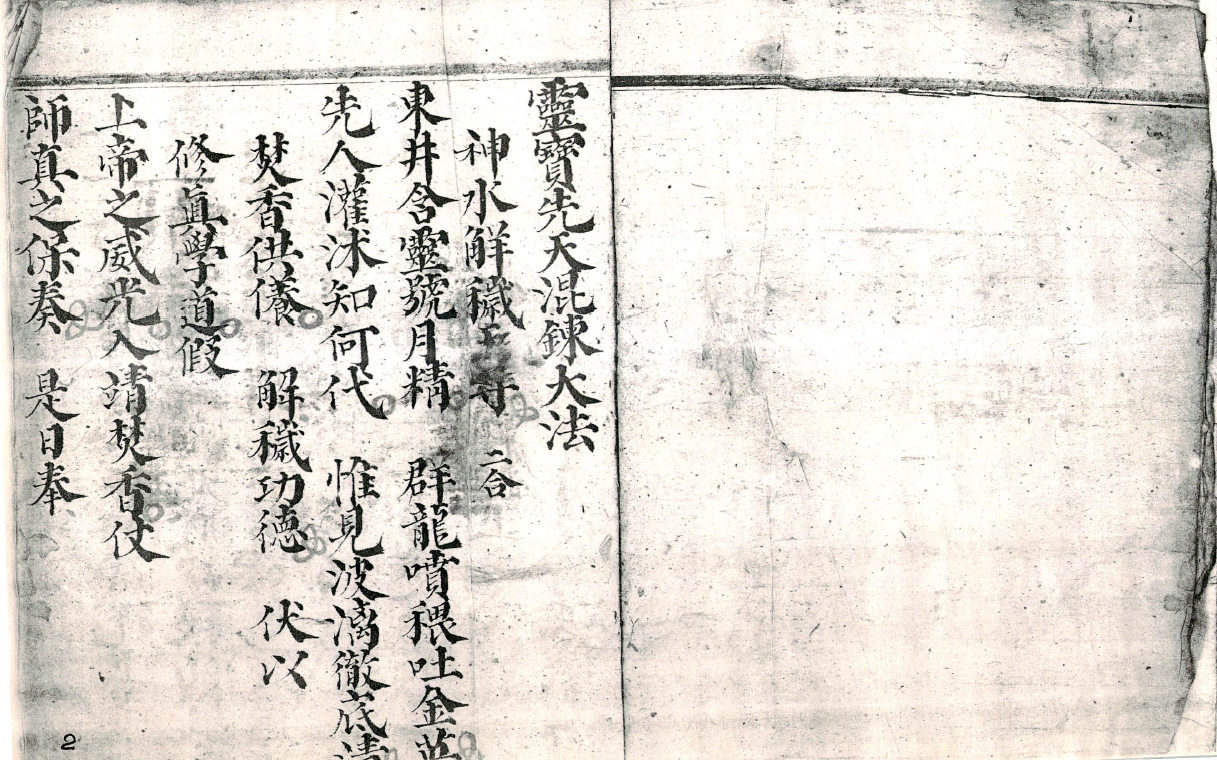 靈寶先天混鍊大法
神水解穢天尊 二合
東井含靈號月精 群龍噴猥吐金英
先人灌沐知何代 惟見波漓徹底清
焚香供養 解穢功德 伏以
修真學道假
上帝之威光入靖焚香仗
師真之保奏 是日奉
2